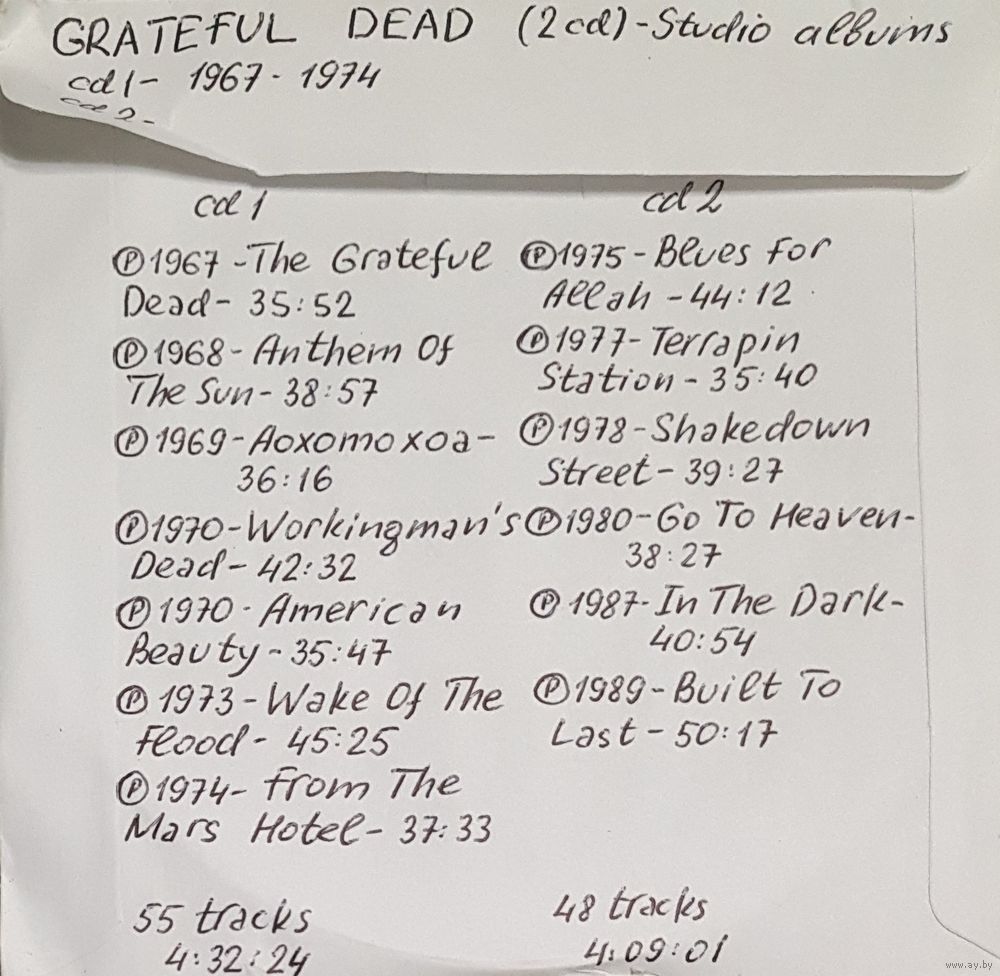 GRATEFUL DEAD (2cd)-Studio albums
cd 1 - 1967 - 1974
cd 2 -
cd 1
Ⓟ1967 - The Grateful
Dead - 35:52
Ⓟ1968 - Anthem Of
The Sun - 38:57
Ⓟ1969 - Aoxomoxoa -
36:16
Ⓟ1970 - Workingman's
Dead - 42:32
Ⓟ1970 - American
Beauty - 35:47
Ⓟ1973 - Wake Of The
Flood - 45:25
Ⓟ1974 - From The
Mars Hotel - 37:33
55 tracks
4:32:24
cd 2
Ⓟ1975 - Blues For
Allah - 44:12
Ⓟ1977 - Terrapin
Station - 35:40
Ⓟ1978 - Shakedown
Street - 39:27
Ⓟ1980 - Go To Heaven -
38:27
Ⓟ1987 - In The Dark -
40:54
Ⓟ1989 - Built To
Last - 50:17
48 tracks
4:09:01
www.ay.by